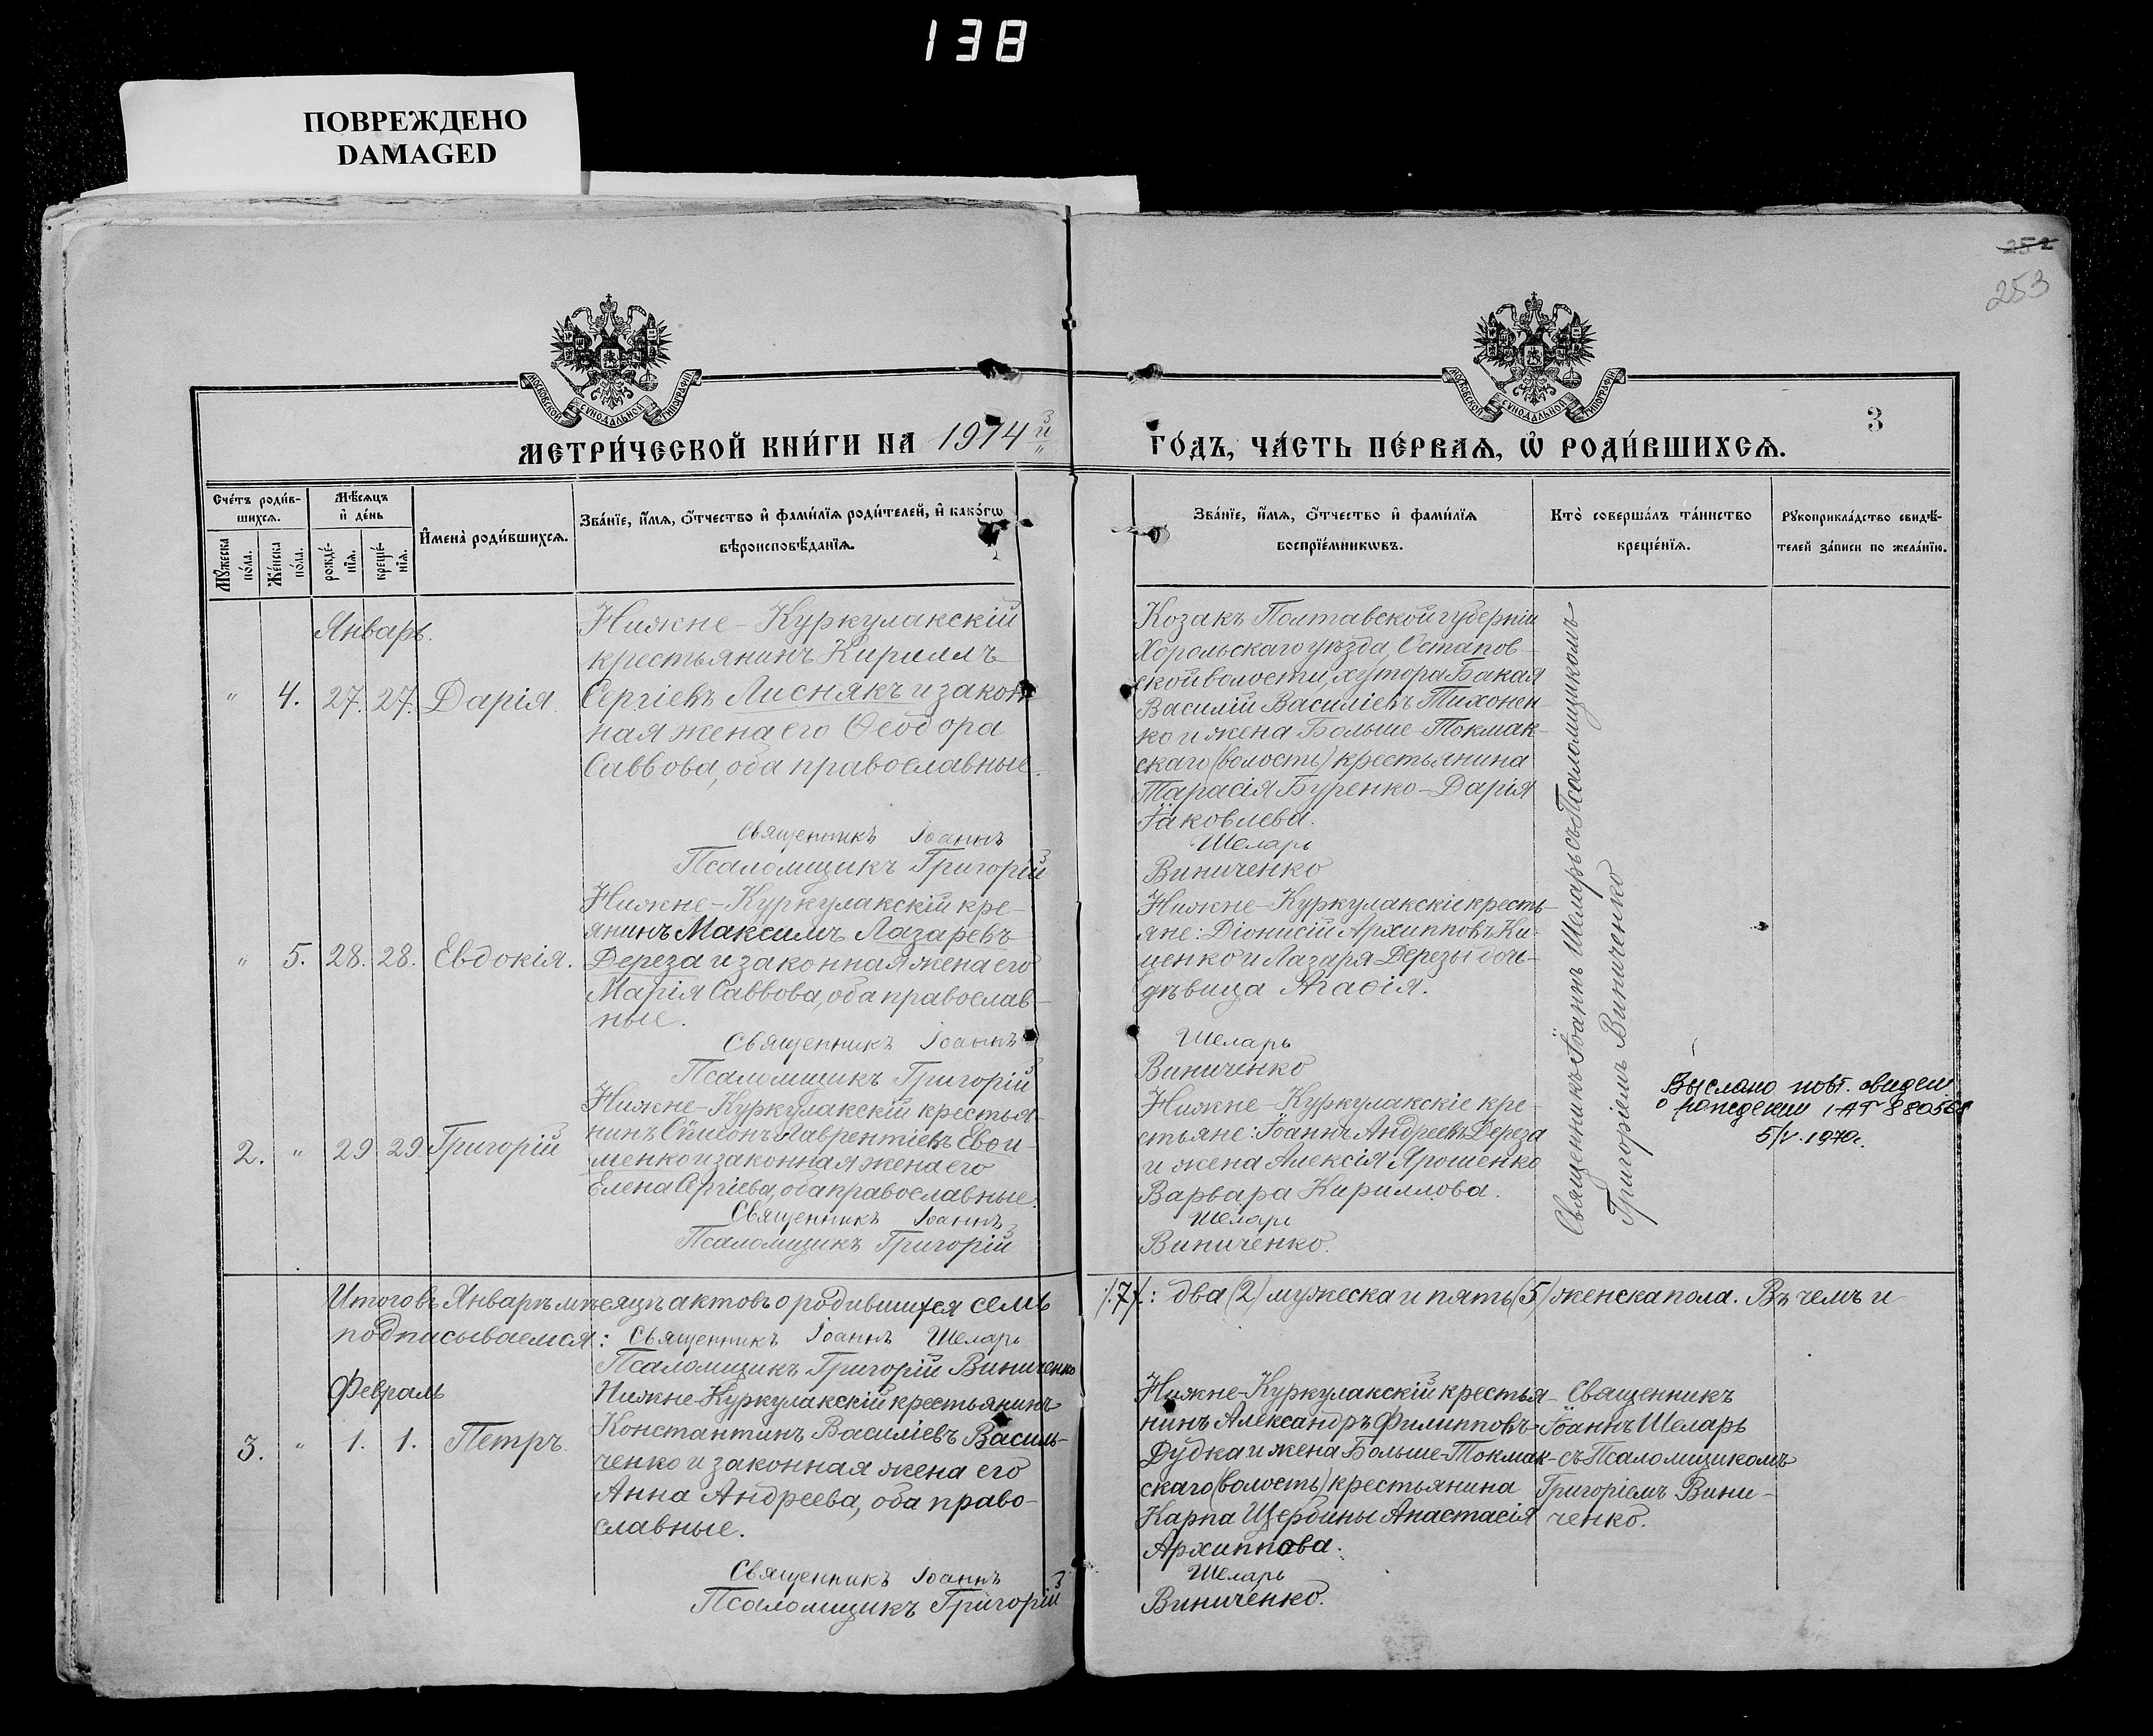 138
ПОВРЕЖДЕНО
DAMAGED
252
253
МОСКОВСКОЙ СѴНОДАЛЬНОЙ ТИПОГРАФІИ
МОСКОВСКОЙ СѴНОДАЛЬНОЙ ТИПОГРАФІИ
3
МЕТРИ́ЧЕСКОЙ КНИ́ГИ НА 1914й ГО́ДЪ, ЧА́СТЬ ПЕ́РВАѦ, Ѡ҆ РОДИ́ВШИХСѦ.
Сче́тъ роди́вшихсѧ.
Мꙋ́жеска по́ла.
Же́нска по́ла.
Мѣ́сѧцъ и҆ де́нь
рожде́нїѧ.
креще́нїѧ.
И҆мена̀ роди́вшихсѧ.
Зва́нїе, и҆́мѧ, ѻ҆́тчество и҆ фами́лїѧ роди́телей, и҆ како́гѡ
вѣроисповѣ́данїѧ.
Зва́нїе, и҆́мѧ, ѻ҆́тчество и҆ фами́лїѧ
воспрїе́мникѡвъ.
Кто̀ соверша́лъ та́инство
креще́нїѧ.
Рꙋкоприкла́дство свидѣ́-
телей за́писи по жела́нїю.
Январь.
" 4. 27. 27. Дарія.
Нижне-Куркулакскій
крестьянинъ Кириллъ
Сергіевъ Лиснякъ и закон
ная жена его Ѳеодора
Саввова, оба православные.
Священникъ Іоаннъ
Псаломщикъ Григорій
Козакъ Полтавской губерніи
Хорольскаго уѣзда, Остапов-
ской волости, хутора Бакая
Василій Василіевъ Тихонен-
ко и жена Больше-Токмак-
скаго (волость) крестьянина
Тарасія Буренко-Дарія
Іаковлева.
Шеларь
Виниченко
Священникъ Іоаннъ Шеларь съ Псаломщикомъ
Григоріемъ Виниченко
" 5. 28. 28. Евдокія.
Нижне-Куркулакскій кре-
янинъ Максимъ Лазаревъ
Дереза и законная жена его
Марія Саввова, оба православ-
ные.
Священникъ Іоаннъ
Псаломщикъ Григорій
Нижне-Куркулакскіе кресть-
яне: Діонисій Архипповъ Ки-
ценко и Лазаря Дерезы дочь-
дѣвица Агаѳія.
Шеларь
Виниченко
2. " 29 29. Григорій
Нижне-Куркулакскій крестья-
нинъ Сѷмеонъ Лаврентіевъ Евои-
менко и законная жена его
Елена Сергіева, оба православные.
Священникъ Іоаннъ
Псаломщикъ Григорій
Нижне-Куркулакскіе кре-
стьяне: Іоаннъ Андреевъ Дереза
и жена Алексія Ярошенко
Варвара Кириллова.
Шеларь
Виниченко.
Выслано повт. свидет
о рождении 1-АТ
5/V.1970г.
Итого въ Январѣ мѣсяцѣ актовъ о родившихся семь /:7/.: два (2) мужеска и пять (5) женска пола. Въ чемъ и
подписываемся: Священникъ Іоаннъ Шеларь
Псаломщикъ Григорій Виниченко
Февраль
3. " 1. 1. Петръ.
Нижне-Куркулакскій крестьянинъ
Константинъ Василіевъ Василь-
ченко и законная жена его
Анна Андреева, оба право-
славные.
Священникъ Іоаннъ
Псаломщикъ Григорій
Нижне-Куркулакскій крестья-
нинъ Александръ Филипповъ-
Дудка и жена Больше-Токмак-
скаго (волость) крестьянина
Карпа Щербины Анастасія
Архиппова.
Шеларь
Виниченко.
Священникъ
Іоаннъ Шеларь
съ Псаломщикомъ
Григоріемъ Вини-
ченко.